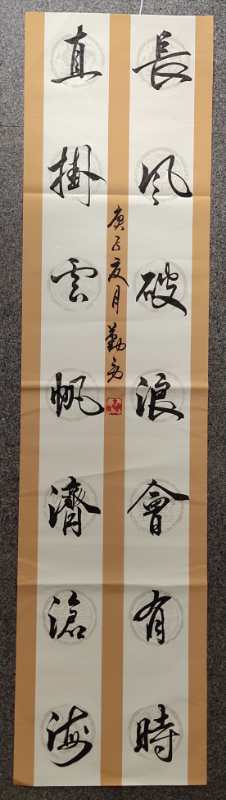 長風破浪會有時
直掛雲帆濟滄海
庚子夏月勤勇